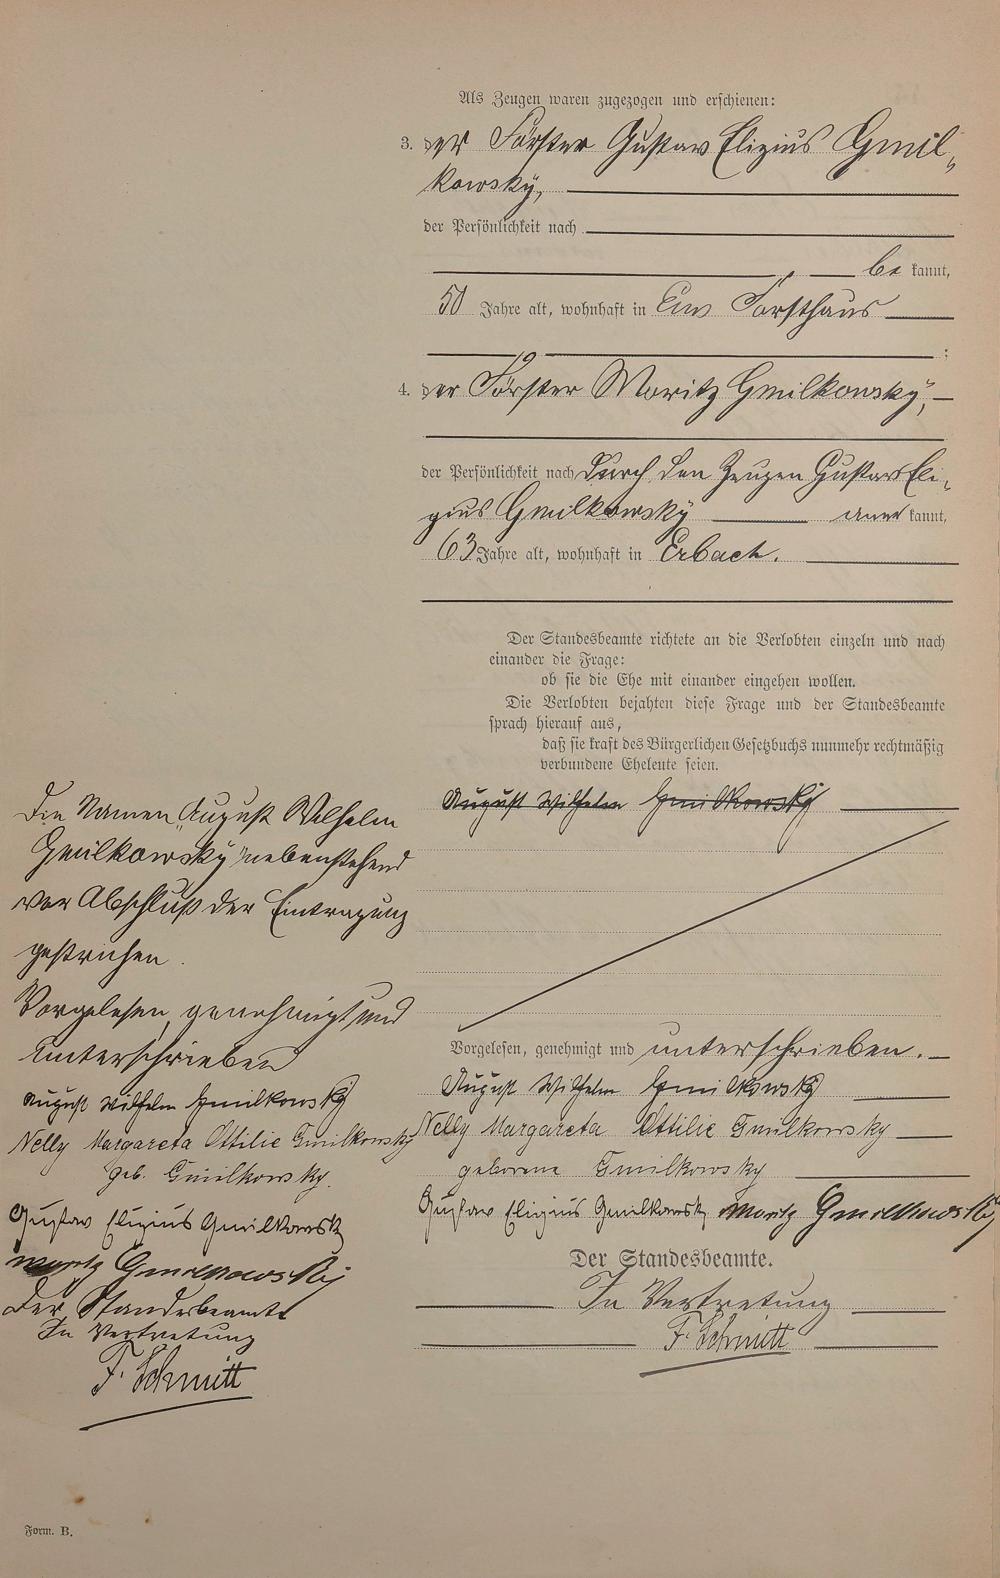 Als Zeugen waren zugezogen und erschienen:
3. der Förster Gustav Eligius Gmil„
kowsky,
der Persönlichkeit nach
, be kannt,
50 Jahre alt, wohnhaft in Forsthaus
;
4. der Förster Moritz Gmilkowsky,
der Persönlichkeit nach durch den Zeugen Gustav Eli„
gius Gmilkowsky aner kannt,
63 Jahre alt, wohnhaft in Erbach.
Der Standesbeamte richtete an die Verlobten einzeln und nach
einander die Frage:
ob sie die Ehe mit einander eingehen wollen.
Die Verlobten bejahten diese Frage und der Standesbeamte
sprach hierauf aus,
daß sie kraft des Bürgerlichen Gesetzbuchs nunmehr rechtmäßig
verbundene Eheleute seien.
August Wilhelm Gmilkowsky
Vorgelesen, genehmigt und unterschrieben.
August Wilhelm Gmilkowsky
Nelly Margareta Ottilie Gmilkowsky
geborene Gmilkowsky
Gustav Eligius Gmilkowsky Moritz Gmilkowsky
Der Standesbeamte.
In Vertretung
F. Schmitt
Die Namen „August Wilhelm
Gmilkowsky" nebenstehend
vor Abschluß der Eintragung
gestrichen.
Vorgelesen, genehmigt und
unterschrieben
August Wilhelm Gmilkowsky
Nelly Margareta Ottilie Gmilkowsky
geb. Gmilkowsky.
Gustav Eligius Gmilkowsky
Moritz Gmilkowsky
Der Standesbeamte
In Vertretung
F. Schmitt
Form. B.